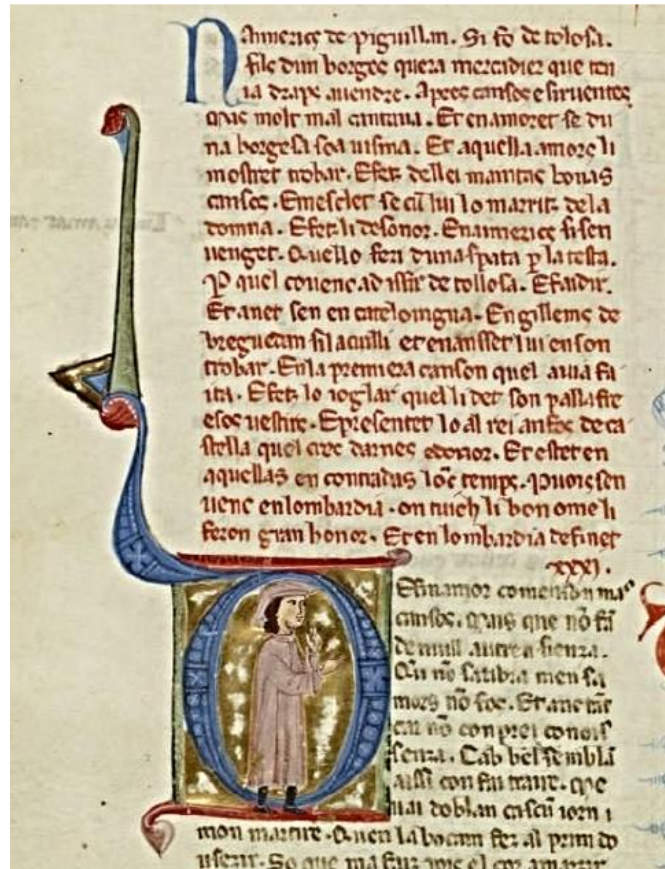 N aimerics de piguillan. Si fo de tolosa.
fils dun borges quera mercadier que ten
ia draps auendre. Apres cansos e siruentes
mas molt mal cantaua. Et enamoret se du
na borgesa soa uisina. Et aquella amors li
mostret trobar. E fetz dellei maintas bonas
cansos. E mesclet se cū lui lo marritz dela
domna. E fetz li desonor. En aimerics si sen
uenget. Quel lo feri duna spata p la testa.
P quel couenc ad issir de tollosa. E faidir.
Et anet sen en cateloingna. En gillems de
breguedam sil acuilli et enansset lui en son
trobar. En la premiera canson quel auia fa
ita. E fetz lo ioglar quel li det son pallafre
e sos uestirs. E presentet lo al rei anfos de ca
stella quel crec darnes edonor. Et estet en
aquellas en contradas lōc temps. Puois sen
uenc en lombardia. on tuich li bon ome li
feron gran honor. Et en lombardia definet
XXXI.
E fin amor comensōn mas
cansos. Mais que nō fā
de nuill autra sienza.
Qu nō saubra men sa
mors nō fos. Et anc tāt
car nō conprei conois
senza. Cab bel semblā
aissi con fai traire. que
uai doblan cascū iorn
mon martire. Quen la bocam fez al prim do
usezir. So que ma faitz pois el cor amarzir